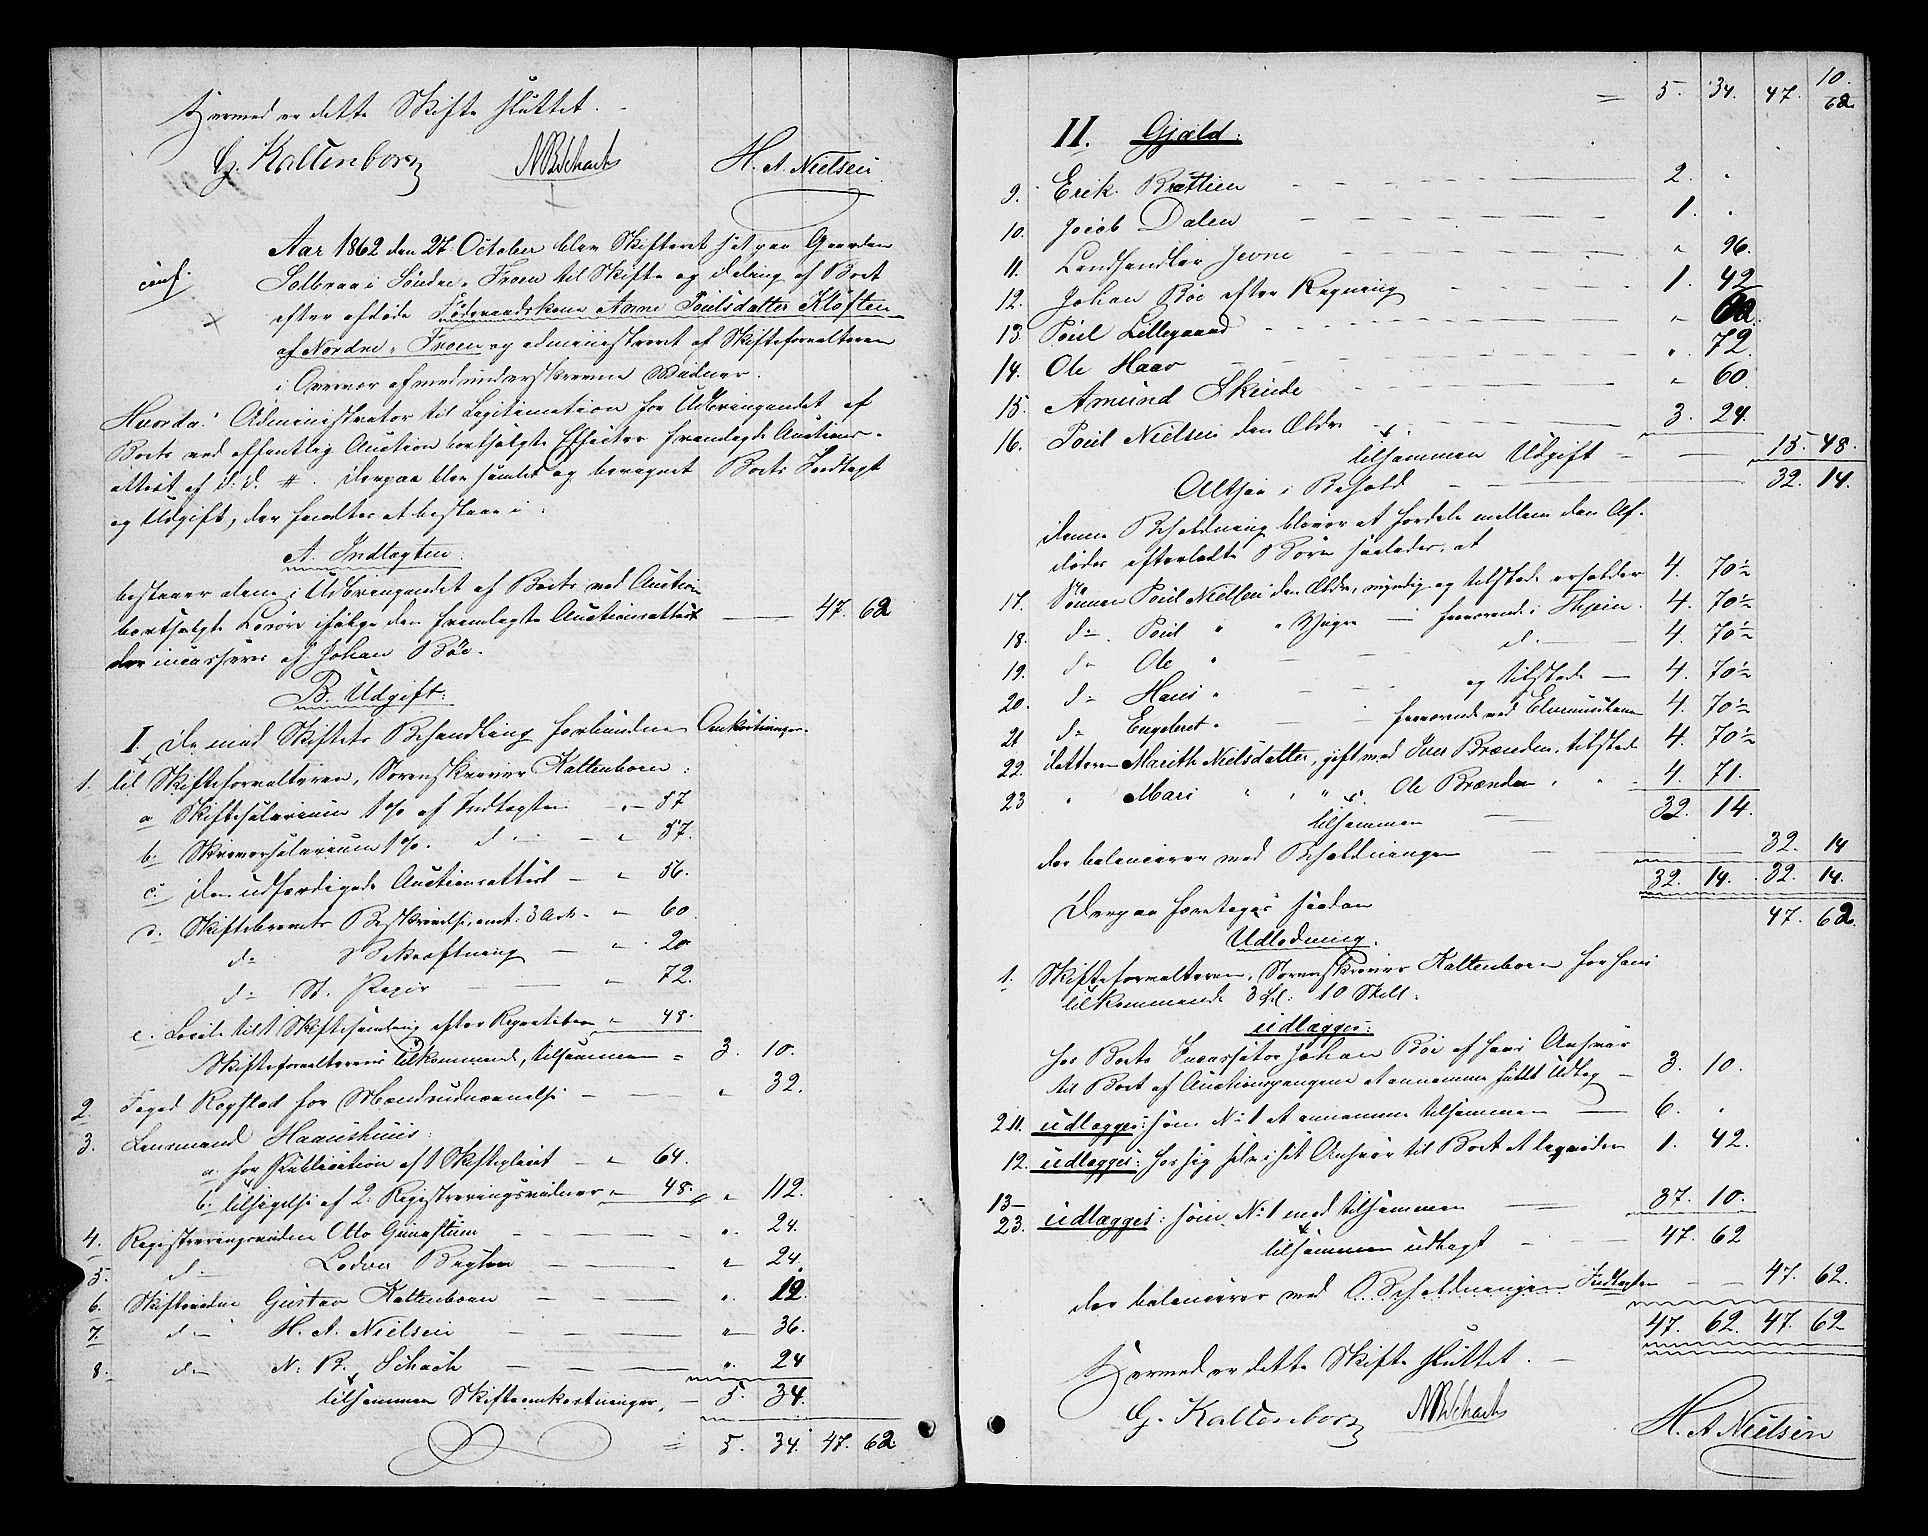 Hermed er dette Skifte sluttet. -
G. Kaltenborn NBSchach H. A. Nielsen.
Aar 1862 den 27. October blev Skifteret sat paa Gaarden
Solbraa i Søndre-Froen til Skifte og Deling af Boet
efter afdøde Føderaadskone Anne Poulsdatter Kløften
af Nordre-Froen og administreret af Skifteforvalteren
i Overvær af medunderskrevne Vidner.
Hvorda: Administrator til Legitimation for Udbringendet af
Boets ved offentlig Auction bortsolgte Effecter fremlagde Auctions-
attest af d. d. #. Derpaa blev samlet og beregnet Boets Indtægt
og Udgift, der fandtes at bestaae i:
A. Indtægten:
bestaaer alene i Udbringendet af Boets ved Auction
bortsolgte Løsøre ifølge den fremlagte Auctionsattest — 47. 62
der incasseres af Johan Bøe.
B. Udgift:
I. De med Skiftets Behandling forbundne Omkostninger.
1. til Skifteforvalteren, Sorenskriver Kaltenborn:
a Skiftesalarium 1 % af Indtægten - " 57
b. Skriversalarium 1 %. d° - " 57.
c. Den udfærdigede Auctionsattest - " 56.
d. Skiftebrevets Beskrivelse, omt. 3 Ark - " 60.
d° Bekræftning — " 20
d° St. Papir — " 72.
e. Locale til 1 Skiftesamling efter Repartition " 48.
Skifteforvalterens tilkommende, tilsammen = 3. 10.
2. Foged Rogstad for Mændsudnævnelse - " 32.
3. Lensmand Haanshuus:
a. for Publication af 1 Skifteplacat - " 64.
b. tilsigelse af 2 Registreringsvidner " 48. " 112.
4. Registreringsvidne Otto Grimstum " 24.
5. d° Lodver Brylen " 24.
6. Skiftevidne Gustav Kaltenborn " 12.
7. d° H. A. Nielsen " 36.
8. d° N. B. Schach " 24
tilsammen Skifteomkostninger, 5. 34.
= 5. 34. 47. 62
= 5. 34. 47. 62
10.
II. Gjæld:
9. Erik Brettien 2. "
10. Jacob Dalen 1. "
11. Landhandler Jevne " 96.
12. Johan Bøe efter Regning 1. 42
13. Poul Lillegaard "
14. Ole Haav " 72.
15. Amund Skinde " 60.
16. Poul Nielsen den Ældre 3. 24.
tilsammen Udgift — 15. 48.
Altsaa i Behold — 32. 14.
denne Beholdning bliver at fordele mellem den Af-
dødes efterladte Børn saaledes, at
17. Sønnen Poul Nielsen den Ældre, myndig og tilstede erholder 4. 70½
18. d° Poul " " Yngre — fraværende i Thjem. 4. 70½
19. d° Ole " — d° 4. 70½
20. d° Hans " — og tilstede — 4. 70½
21 d° Engebret " — fraværende ved 4. 70½
22. datteren Marith Nielsdatter, gift med Iver Brænden, tilstede 4. 70½
23 " Mari " " " Ole Brænden " " 4. 71.
tilsammen 32. 14.
der balancerer med Beholdningen 32. 14
32. 14. 32. 14.
Derpaa foretoges saadan 47. 62.
Udlodning.
1. Skifteforvalteren, Sorenskriver Kaltenborn for hans
tilkommende 3 Spd: 10 Skill:
udlægges:
hos Boets Incassator Johan Bøe af hans Ansvar
til Boet af Auctionspengene at annamme fuldt Udlæg — 3. 10.
2-11. udlægges: som N° 1 at annamme tilsammen — 6. "
12. udlægges: hos sig selv i sit Ansvar til Boet at liquidere 1. 42.
13-
23. udlægges: som N° 1 med tilsammen — 37. 10.
tilsammen udlagt — 47. 62
der balancerer med Beholdningen Indtægten — 47. 62.
47. 62. 47. 62
Hermed er dette Skifte sluttet. —
G. Kaltenborn NBSchach H. A Nielsen